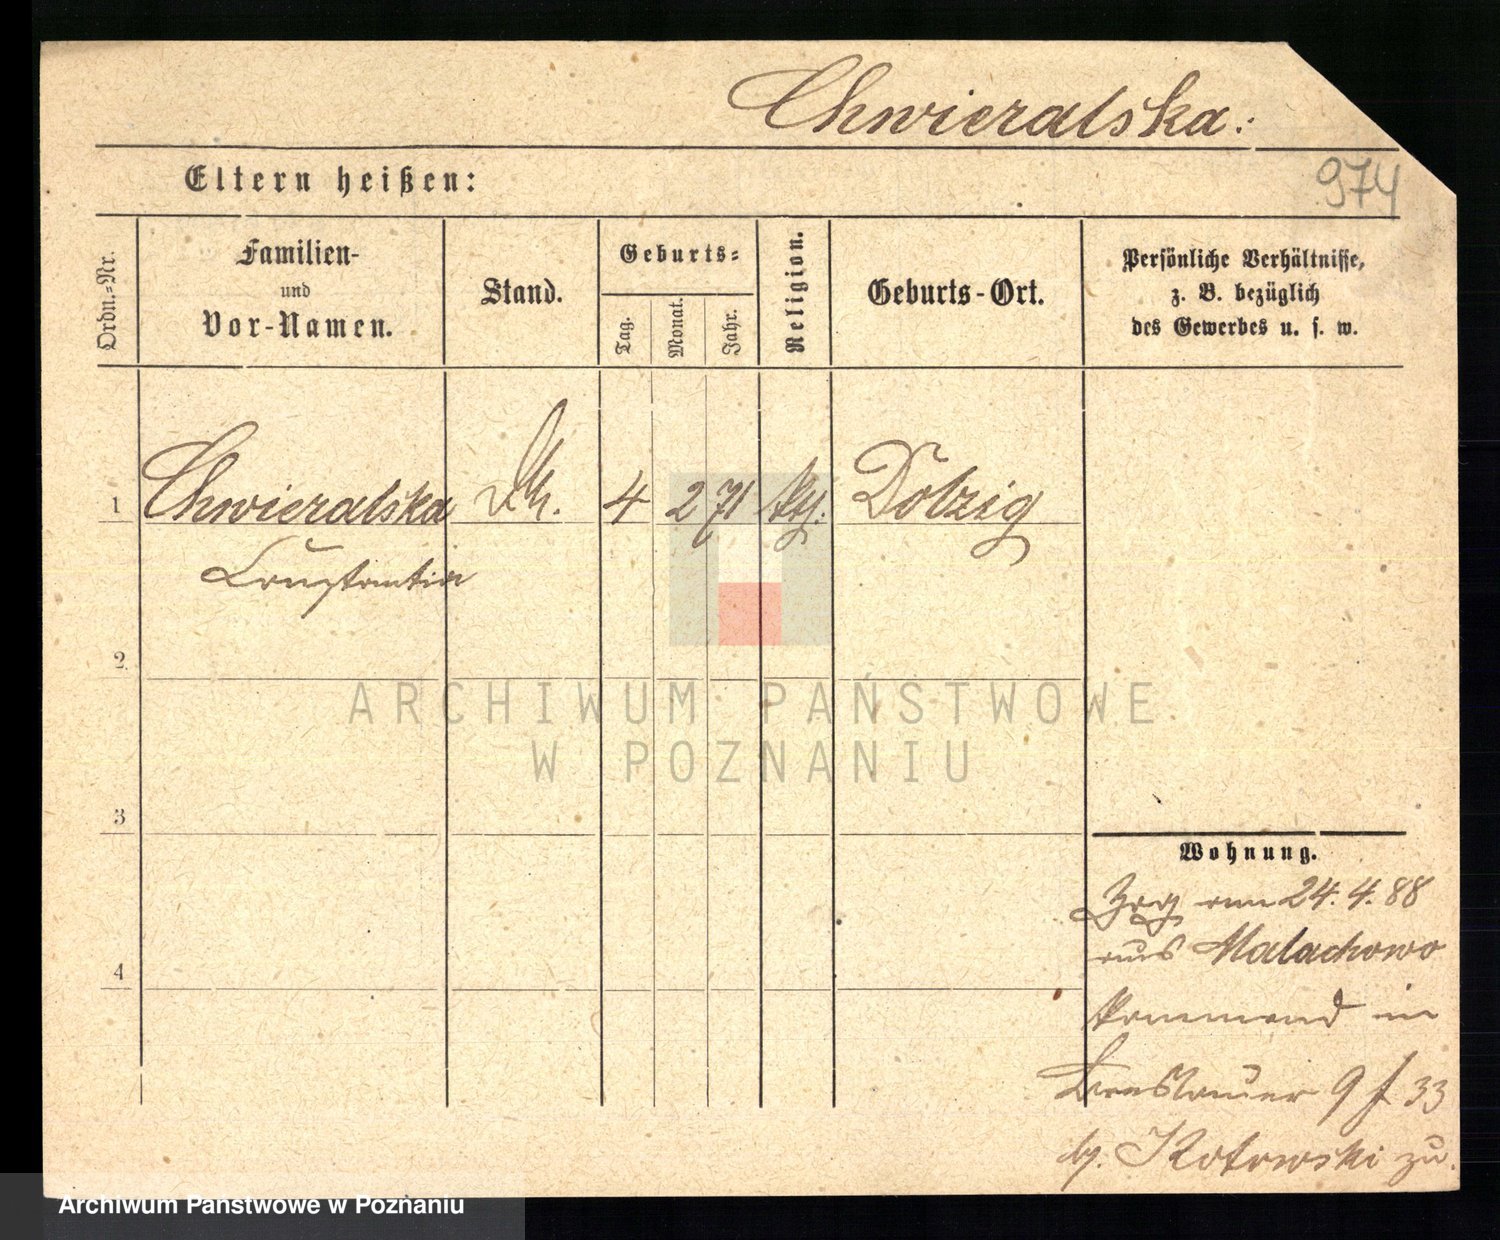 Chwieralska:
974
Eltern heißen:
Ordn.=Nr.
Familien-
und
Vor-Namen.
Stand.
Geburts=
Tag.
Monat.
Jahr.
Religion.
Geburts-Ort.
Persönliche Verhältnisse,
z. B. bezüglich
des Gewerbes u. s. w.
1 Chwieralska 4 2 71 kth: Dolzig
Constantia
2
3
4
ARCHIWUM PAŃSTWOWE
W POZNANIU
Wohnung.
Zzg am 24. 4. 88
aus Malachowo
kommend in
Breslauer 9 f 33
by. Kotowski zu.
Archiwum Państwowe w Poznaniu